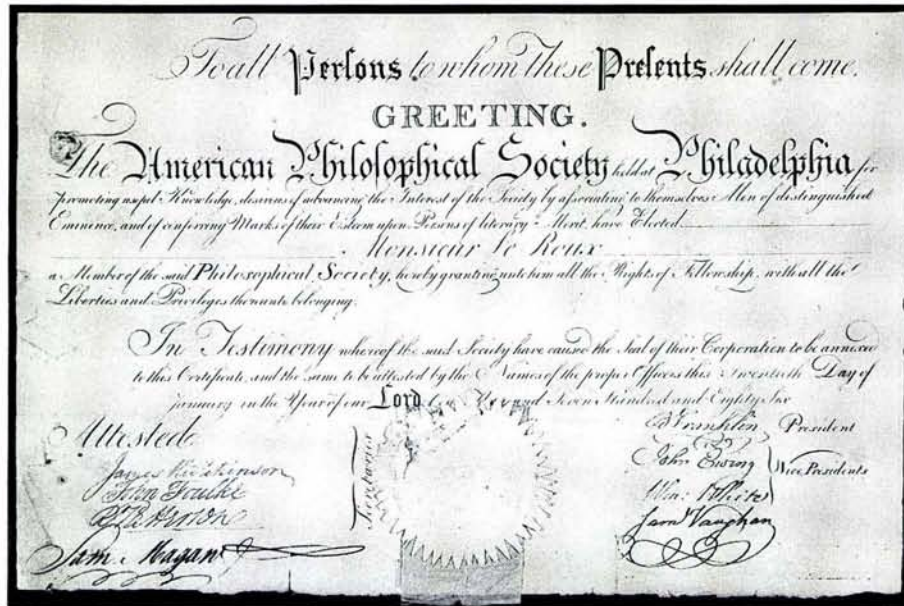 To all Persons to whom these Presents shall come.
GREETING.
The American Philosophical Society held at Philadelphia for
promoting useful Knowledge, desirous of advancing the Interest of the Society by associating to themselves Men of distinguished
Eminence, and of conferring Marks of their Esteem upon Persons of literary Merit, have Elected
Monsieur Le Roux
a Member of the said Philosophical Society, hereby granting unto him all the Rights of Fellowship, with all the
Liberties and Privileges thereunto belonging.
In Testimony whereof the said Society have caused the Seal of their Corporation to be annexed
to this Certificate, and the same to be attested by the Names of the proper Officers this Twentieth Day of
January in the Year of our Lord One Seven Hundred and Eighty Six
Attested
James Hutchinson
John Foulke
Sam Magaw
Secretaries
B Franklin President
John Ewing
Wm. White
Vice Presidents
Sam Vaughan